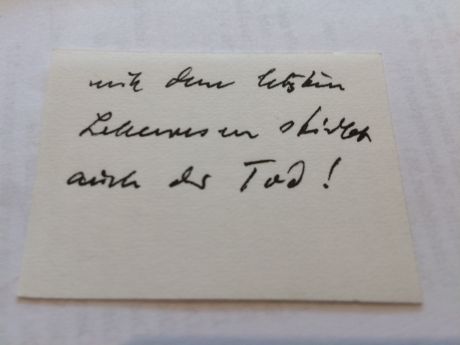 mit dem letzten
Lebewesen stirbt
auch der Tod!